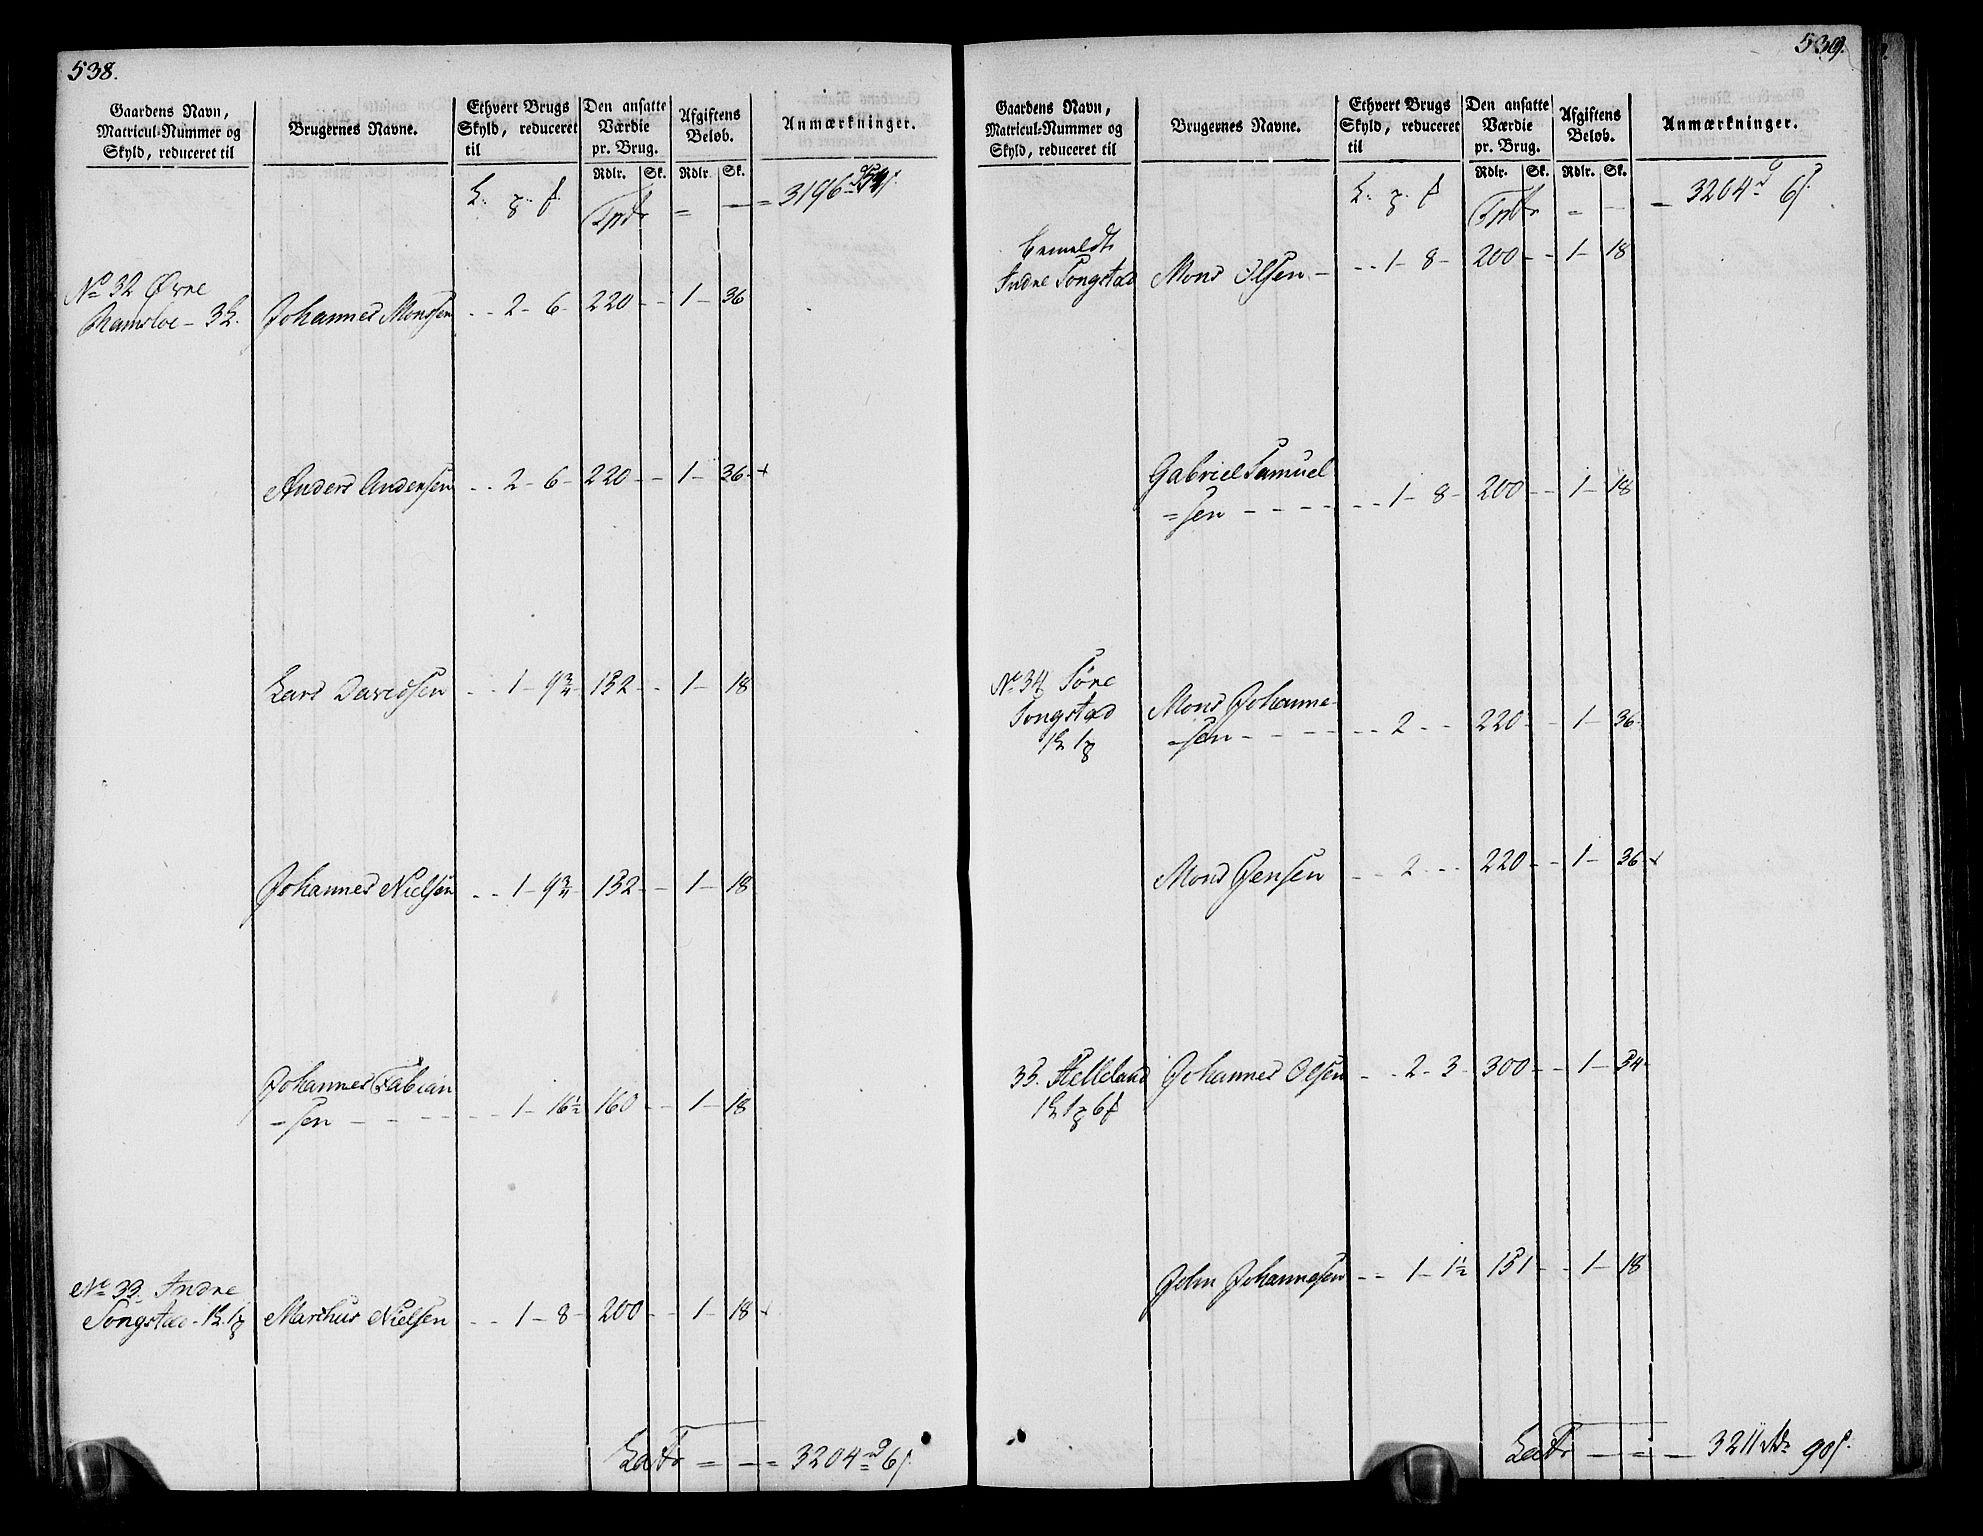 538.
Gaardens Navn, Matricul-Nummer og Skyld, reduceret til
Brugernes Navne.
Ethvert Brugs Skyld, reduceret til
Den ansatte Værdie pr. Brug.
Afgiftens Beløb.
Anmærkninger.
Rdlr. Sk. Rdlr. Sk.
Tptr = — = 3196
No 32 Øvre
Ramsloe - 32. Johannes Monssen - - 2 - 6 - 220 - - 1 - 36
Anders Andersen - - 2 - 6 - 220 - - 1 - 36 - +
Lars Davidsen - - 1 - 9 3/4 - 132 - - 1 - 18
Johannes Nielsen - - 1 - 9 3/4 - 132 - - 1 - 18
Johannes Fabian
=sen - - - - 1 - 16 1/2 160 - - 1 - 18
No 33. Indre
Songstad Marthus Nielsen - - 1 - 8 - 200 - - 1 - 18 +
Latr = — = 3204 6
539.
Gaardens Navn, Matricul-Nummer og Skyld, reduceret til
Brugernes Navne.
Ethvert Brugs Skyld, reduceret til
Den ansatte Værdie pr. Brug.
Afgiftens Beløb.
Anmærkninger.
Rdlr. Sk. Rdlr. Sk.
Tptr = — - 3204 6
bemeldte
Indre Songstad Mons Olsen - - - 1 - 8 - 200 - - 1 - 18
Gabriel Samuel
=sen - - - - - - 1 - 8 - 200 - - 1 - 18
No 34 Søre
Songstad Mons Johanne-
=sen - - - - - - 2 - - 220 - - 1 - 36
Mons Jensen - - 2 - - 220 - - 1 - 36 +
35. Helleland Johannes Olsen - - 2 - 3 - 300 - - 1 - 54
John Johannesen - - 1 - 1 1/2 151 - - 1 - 18
Latr — = — 3211 90